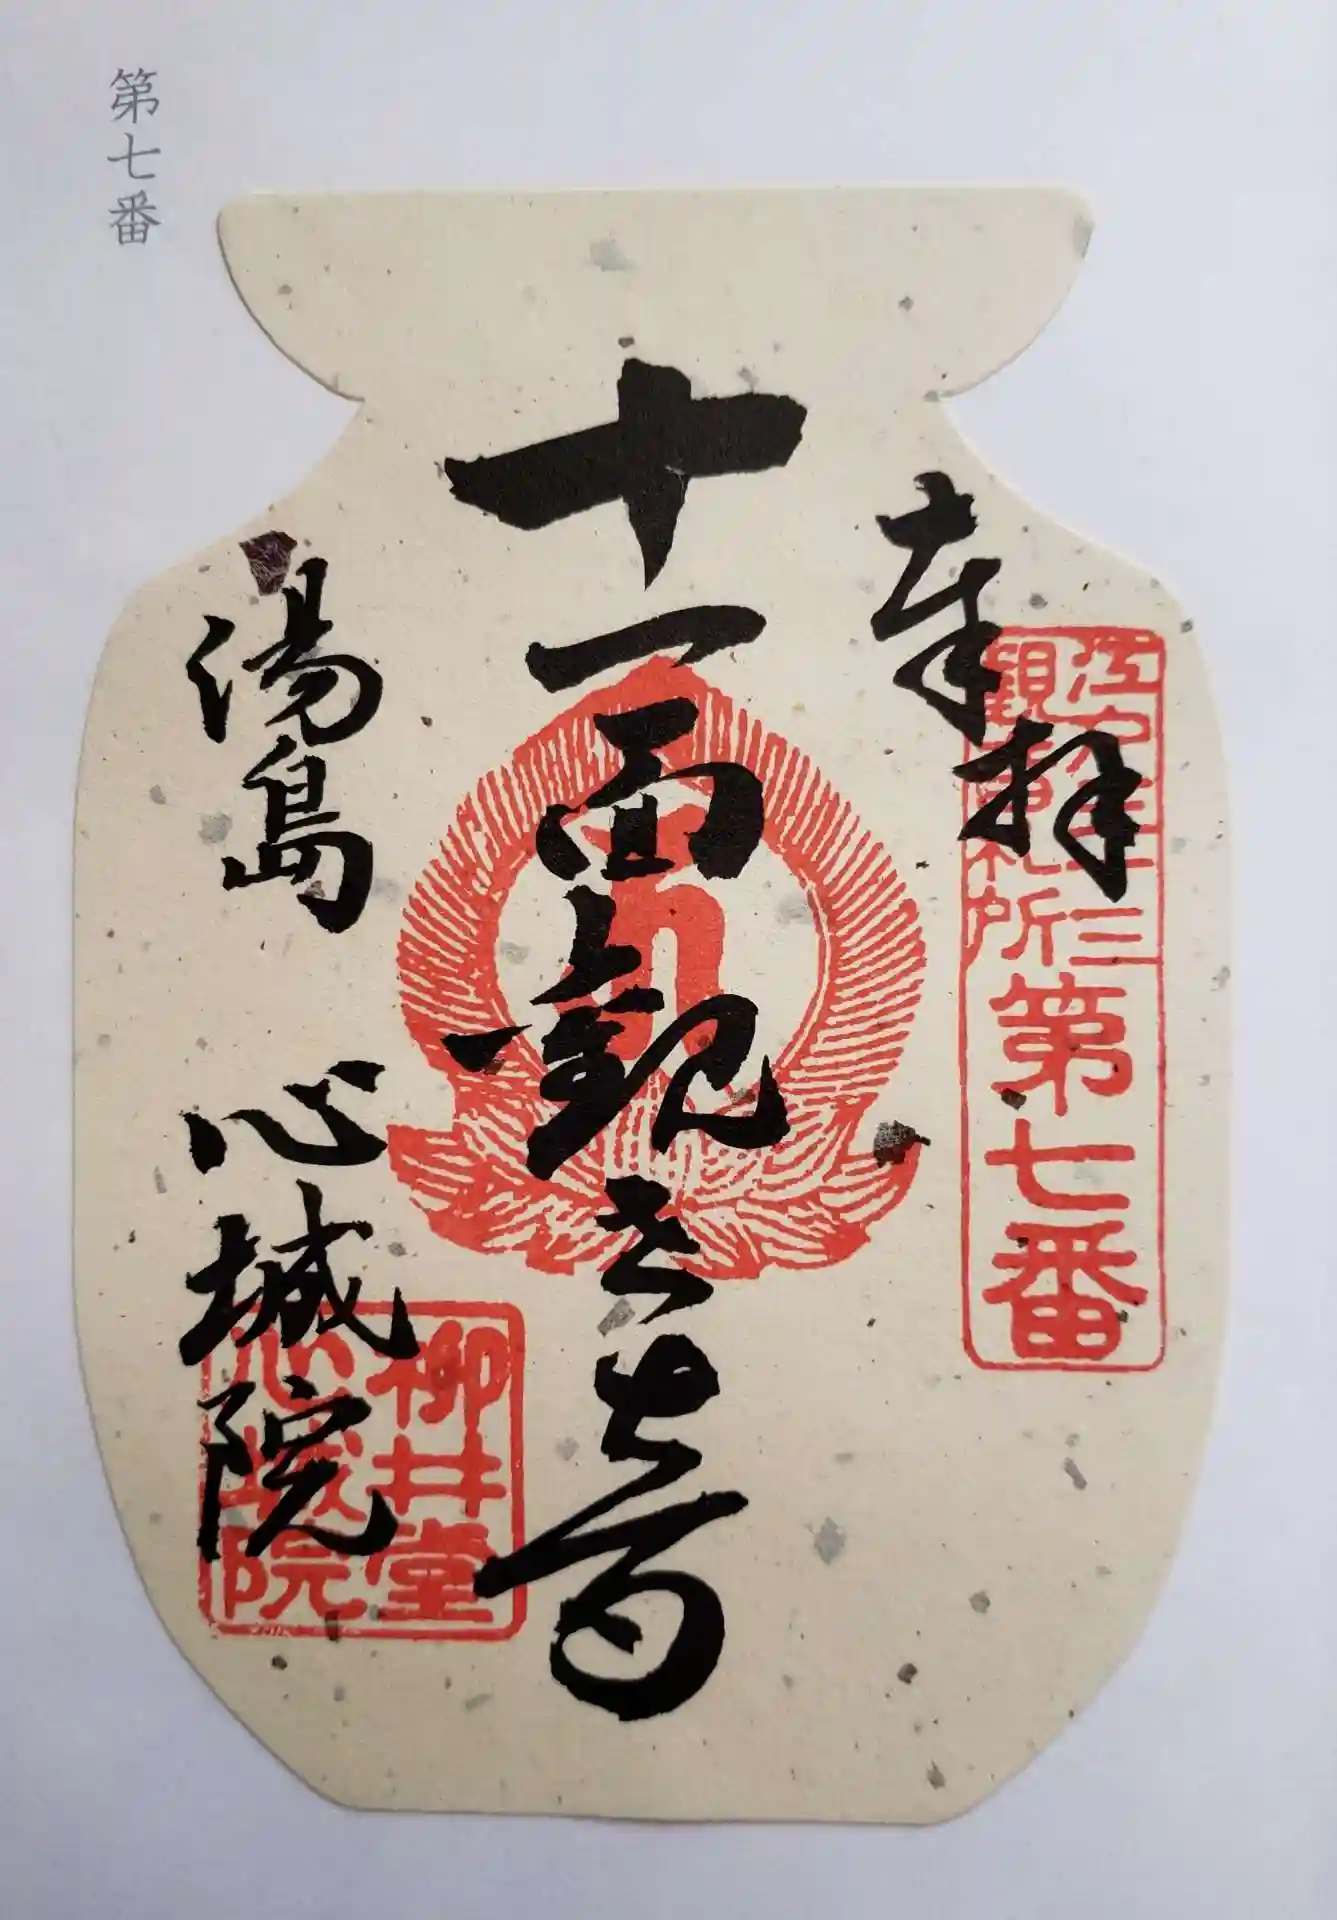 第七番
奉拝
江戸三十三
観音札所
第七番
十一面観世音
湯島 心城院
柳井堂
心城院